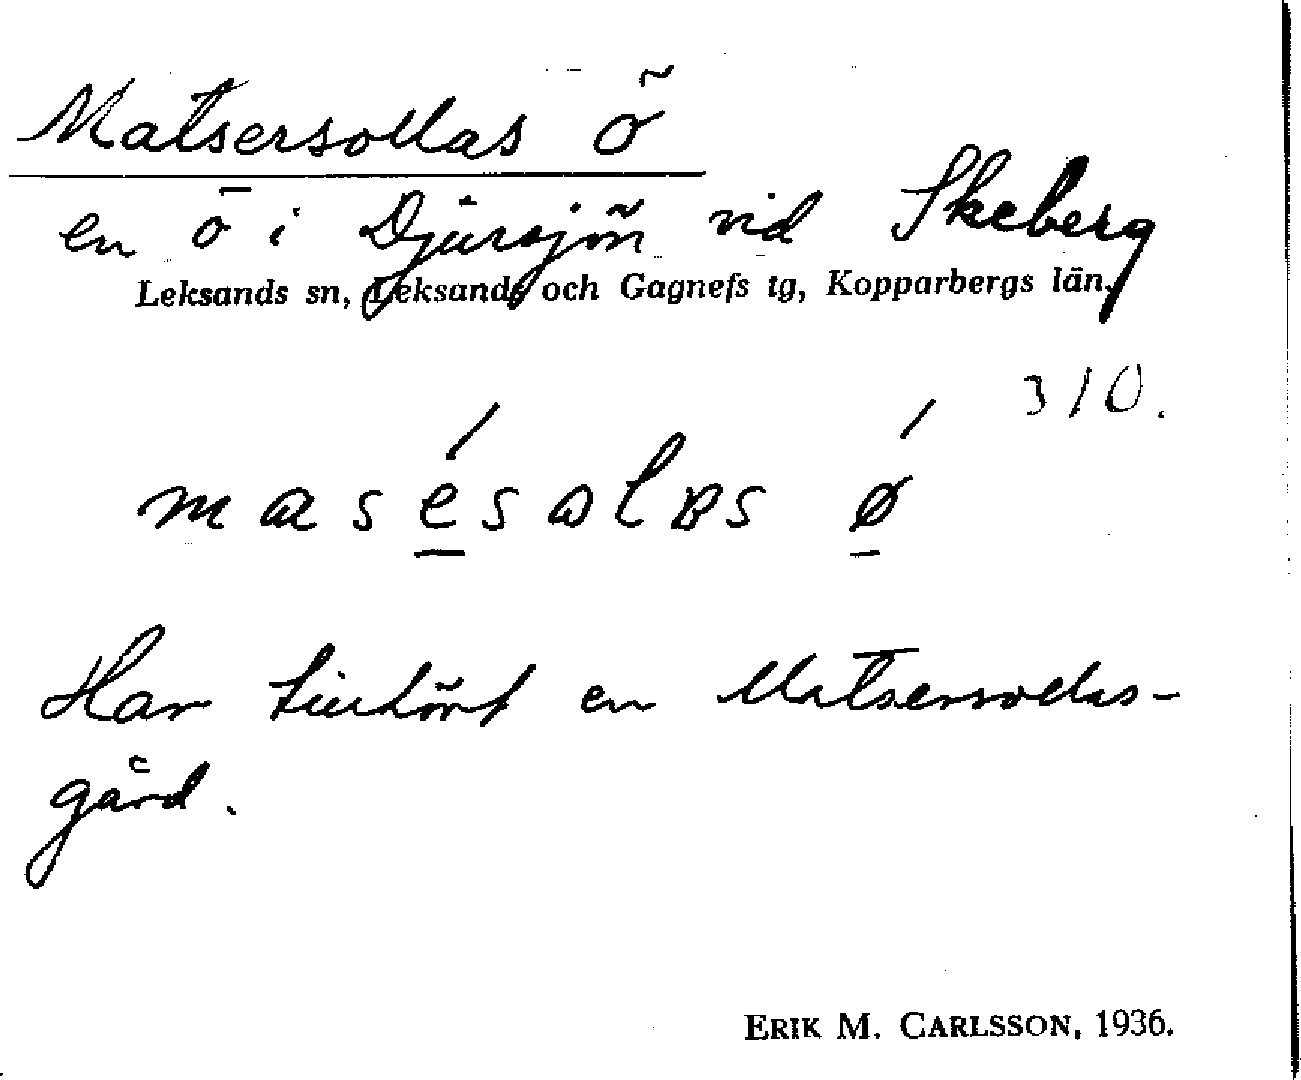 Matsersollas ö
en ö i Djursjön vid Skeberg
Leksands sn, Leksands och Gagnefs tg, Kopparbergs län.
310.
masésɷlɐs ǿ
Har tillhört en Matsersollas-
gård.
ERIK M. CARLSSON, 1936.